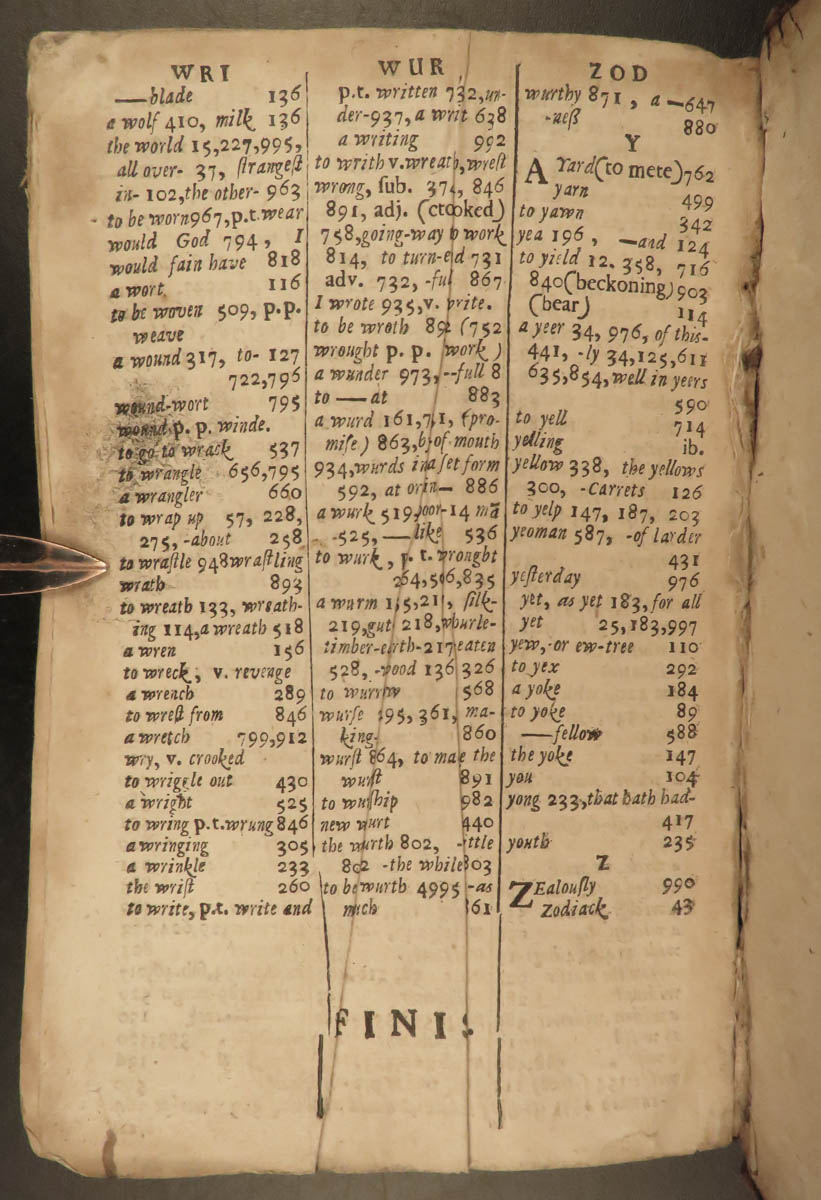 WRI
—blade 136
a wolf 410, milk 136
the world 15,227,995,
all over- 37, ſtrangeſt
in- 102,the other- 963
to be worn967,p.t.wear
would God 794, I
would fain have 818
a wort 116
to be woven 509, p.p.
weave
a wound 317, to- 127
722,796
wound-wort 795
wound p. p. winde.
to go to wrack 537
to wrangle 656,795
a wrangler 660
to wrap up 57, 228,
275, -about 258
to wraſtle 948wraſtling
wrath 893
to wreath 133, wreath-
ing 114,a wreath 518
a wren 156
to wreck, v. revenge
a wrench 289
to wreſt from 846
a wretch 799,912
wry, v. crooked
to wriggle out 430
a wright 525
to wring p.t.wrung 846
a wringing 305
a wrinkle 233
the wriſt 260
to write, p.t. write and
WUR
p.t. written 732,un-
der-937, a writ 638
a writing 992
to writh v.wreath,wreſt
wrong, ſub. 374, 846
891, adj. (ctooked)
758,going-way to work
814, to turn-ed 731
adv. 732, -ful 867
I wrote 935,v. write.
to be wroth 892 (752
wrought p. p. work)
a wunder 973,--full 8
to — at 883
a wurd 161,741, (pro-
miſe) 863,by of mouth
934,wurds in a ſet form
592, at orin— 886
a wurk 519,poor-14 mā
-525,—like 536
to wurk, p. t. wronght
264,516,835
a wurm 115,21, ſilk-
219,gut 218,whurle-
timber-earth-217eaten
528, -wood 136 326
to wurrow 568
wurſe 195, 361, ma-
king- 860
wurſt 864, to make the
wurſt 891
to wurſhip 982
new wurt 440
the wurth 802, -ittle
802 -the while803
to be wurth 4995 -as
much 61
FINIS
ZOD
wurthy 871, a —647
-neß 880
Y
A Yard(to mete)762
yarn 499
to yawn 342
yea 196, —and 124
to yield 12. 358, 716
840(beckoning)903
(bear) 114
a yeer 34, 976, of this-
441, -ly 34,125,611
635,854,well in yeers
590
to yell 714
yelling ib.
yellow 338, the yellows
300, -Carrets 126
to yelp 147, 187, 203
yeoman 587, -of larder
431
yeſterday 976
yet, as yet 183,for all
yet 25,183,997
yew,-or ew-tree 110
to yex 292
a yoke 184
to yoke 89
—fellow 588
the yoke 147
you 104
yong 233,that hath had-
417
youth 235
Z
ZEalouſly 990
Zodiack 43